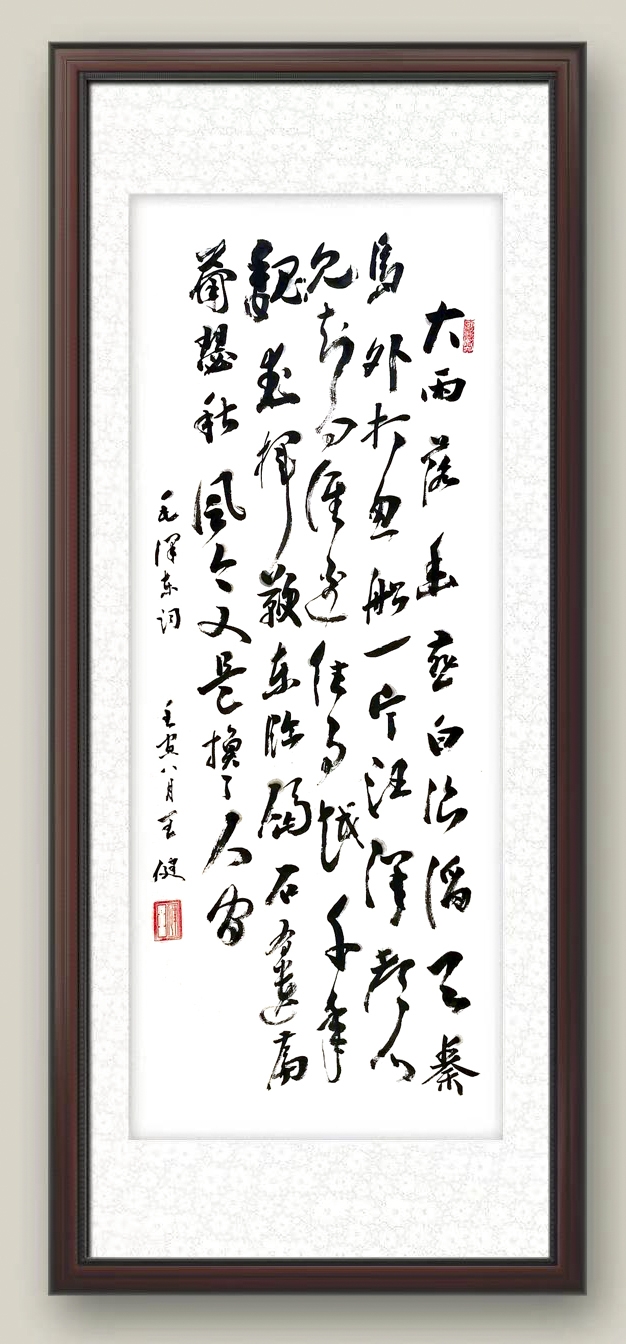 大雨落幽燕白浪滔天秦
島外打魚船一片汪洋都不
见知向谁邊往事越千年
魏武揮鞭东临碣石有遗篇
萧瑟秋風今又是换了人间
毛泽东词 壬寅八月王健